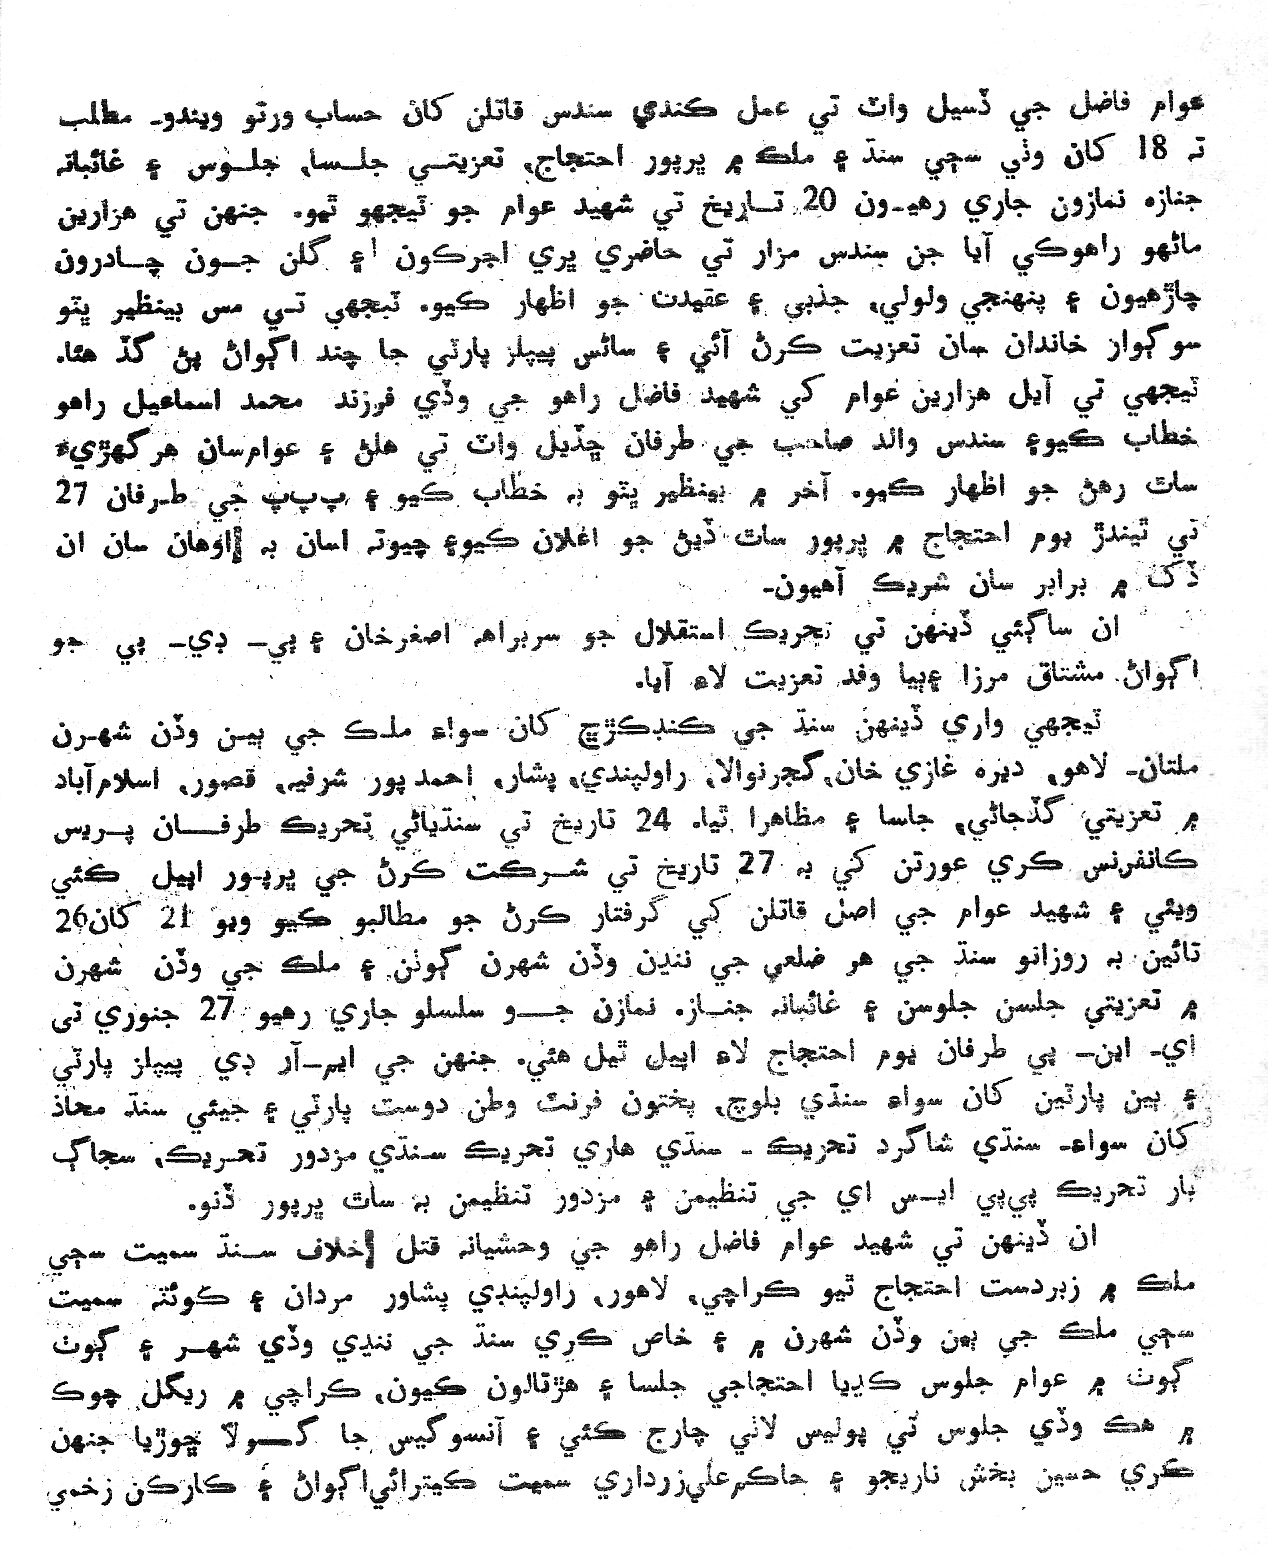 عوام فاضل جي ڏسيل واٽ تي عمل ڪندي سندس قاتلن کان حساب ورتو ويندو۔ مطلب
تہ 18 کان وٺي سڄي سنڌ ۽ ملڪ ۾ ڀرپور احتجاج، تعزيتي جلسا، جلوس ۽ غائبانہ
جنازه نمازون جاري رهيون 20 تاريخ تي شهيد عوام جو ٽيجهو ٿيو. جنهن تي هزارين
ماڻهو راهوڪي آيا جن سندس مزار تي حاضري ڀري اجرڪون ۽ گلن جون چادرون
چاڙهيون ۽ پنهنجي ولولي، جذبي ۽ عقيدت جو اظهار ڪيو. ٽيجهي تي مس بينظير ڀٽو
سوڳوار خاندان سان تعزيت ڪرڻ آئي ۽ ساڻس پيپلز پارٽي جا چند اڳواڻ پڻ گڏ هئا.
ٽيجهي تي آيل هزارين عوام کي شهيد فاضل راهو جي وڏي فرزند محمد اسماعيل راهو
خطاب ڪيو۽ سندس والد صاحب جي طرفان ڇڏيل واٽ تي هلڻ ۽ عوام‌سان هر گهڙيءَ
ساٿ رهڻ جو اظهار ڪيو. آخر ۾ بينظير ڀٽو بہ خطاب ڪيو ۽ پ‌پ‌پ جي طرفان 27
تي ٿيندڙ يوم احتجاج ۾ ڀرپور ساٿ ڏيڻ جو اعلان ڪيو۽ چيوتہ اسان بہ اوهان سان ان
ڏک ۾ برابر سان شريڪ آهيون۔
ان ساڳئي ڏينهن تي تحريڪ استقلال جو سربراهہ اصغرخان ۽ پي۔ ڊي۔ پي جو
اڳواڻ مشتاق مرزا ۽ٻيا وفد تعزيت لاءِ آيا.
ٽيجهي واري ڏينهن سنڌ جي ڪنڊڪڙڇ کان سواءِ ملڪ جي ٻين وڏن شهرن
ملتان۔ لاهو، ديره غازي خان، گجرنوالا، راولپنڊي، پشار، احمدپور شرفيہ، قصور، اسلام‌آباد
۾ تعزيتي گڏجاڻي، جلسا ۽ مظاهرا ٿيا. 24 تاريخ تي سنڌياڻي تحريڪ طرفان پريس
ڪانفرنس ڪري عورتن کي بہ 27 تاريخ تي شرڪت ڪرڻ جي ڀرپور اپيل ڪئي
ويئي ۽ شهيد عوام جي اصل قاتلن کي گرفتار ڪرڻ جو مطالبو ڪيو ويو 21 کان26
تائين بہ روزانو سنڌ جي هر ضلعي جي ننڍن وڏن شهرن ڳوٺن ۽ ملڪ جي وڏن شهرن
۾ تعزيتي جلسن جلوسن ۽ غائبانہ جنازہ نمازن جو سلسلو جاري رهيو 27 جنوري تي
اي۔ اين۔ پي طرفان يوم احتجاج لاءِ اپيل ٿيل هئي. جنهن جي ايم۔آر ڊي پيپلز پارٽي
۽ ٻين پارٽين کان سواءِ سنڌي بلوچ، پختون فرنٽ وطن دوست پارٽي ۽ جيئي سنڌ محاذ
کان سواءِ۔ سنڌي شاگرد تحريڪ ۔ سنڌي هاري تحريڪ سنڌي مزدور تحريڪ، سجاڳ
ٻار تحريڪ پي‌پي ايس اي جي تنظيمن ۽ مزدور تنظيمن بہ ساٿ ڀرپور ڏنو.
ان ڏينهن تي شهيد عوام فاضل راهو جي وحشيانہ قتل خلاف سنڌ سميت سڄي
ملڪ ۾ زبردست احتجاج ٿيو ڪراچي، لاهور، راولپنڊي پشاور مردان ۽ ڪوئٽہ سميت
سڄي ملڪ جي ٻين وڏن شهرن ۾ ۽ خاص ڪري سنڌ جي ننڍي وڏي شهر ۽ ڳوٺ
ڳوٺ ۾ عوام جلوس ڪڍيا احتجاجي جلسا ۽ هڙتالون ڪيون، ڪراچي ۾ ريگل چوڪ
۾ هڪ وڏي جلوس تي پوليس لاٺي چارج ڪئي ۽ آنسوگيس جا گولا ڇوڙيا جنهن
ڪري حسين بخش ناريجو ۽ حاڪم‌علي‌زرداري سميت ڪيترائي‌اڳواڻ ۽ ڪارڪن زخمي